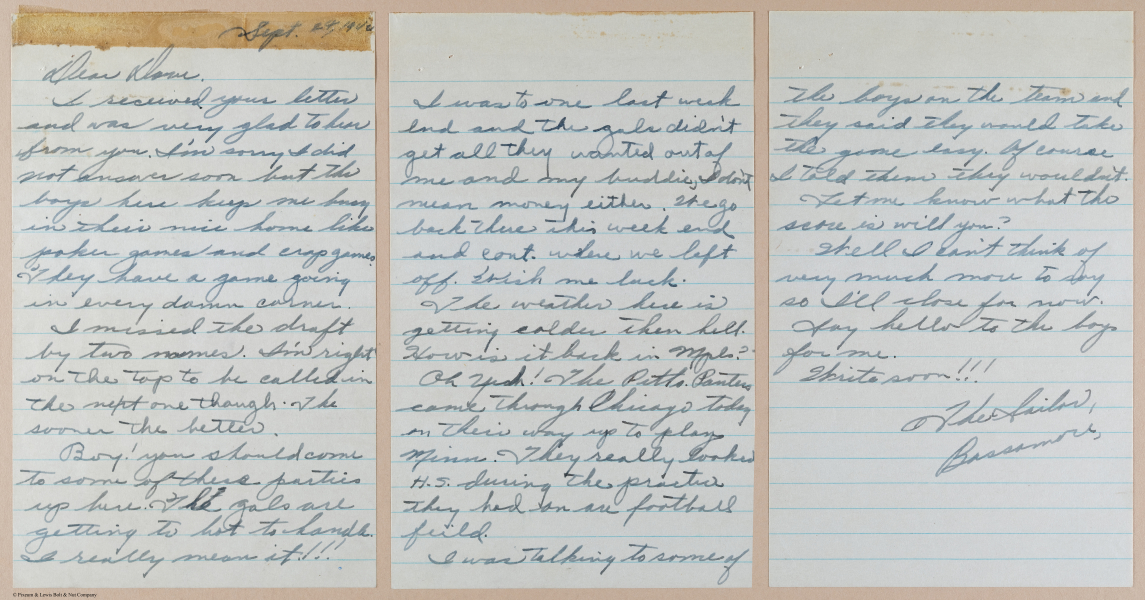 Sept. 24, 194
Dear Dave.
I received your letter
and was very glad to hear
from you. I'm sorry I did
not answer soon but the
boys here keeps me busy
in their nice home like
poker games and crap games.
They have a game going
in every damn corner.
I missed the draft
by two names. I'm right
on the top to be called in
the next one though. The
sooner the better.
Boy! you should come
to some of these parties
up here. The gals are
getting to hot to handle.
I really mean it!!!
I was to one last week
end and the gals didn't
get all they wanted out of
me and my buddie, I don't
mean money either. We go
back there this week end
and cont. where we left
off. Wish me luck.
The weather here is
getting colder then hell.
How is it back in Mpls.?
Oh Yeh! The Pitts. Panters
came through Chicago today
on their way up to play
Minn. They really looked
H.S. during the practice
they had on are football
feild.
I was talking to some of
the boys on the team and
they said they would take
the game easy. Of course
I told them they wouldn't.
Let me know what the
score is will you?
Well I can't think of
very much more to say
so I'll close for now.
Say hello to the boys
for me.
Write soon!!!
The Sailor,
Bassamore,
© Frazen & Lewis Bolt & Nut Company